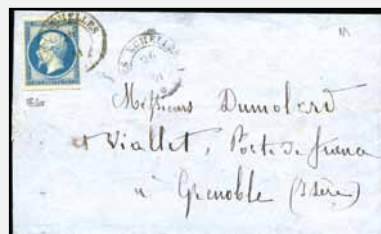 LES ECHELLES
Messieurs Dumolard
et Viallet, Porte de france
à Grenoble (Isère)